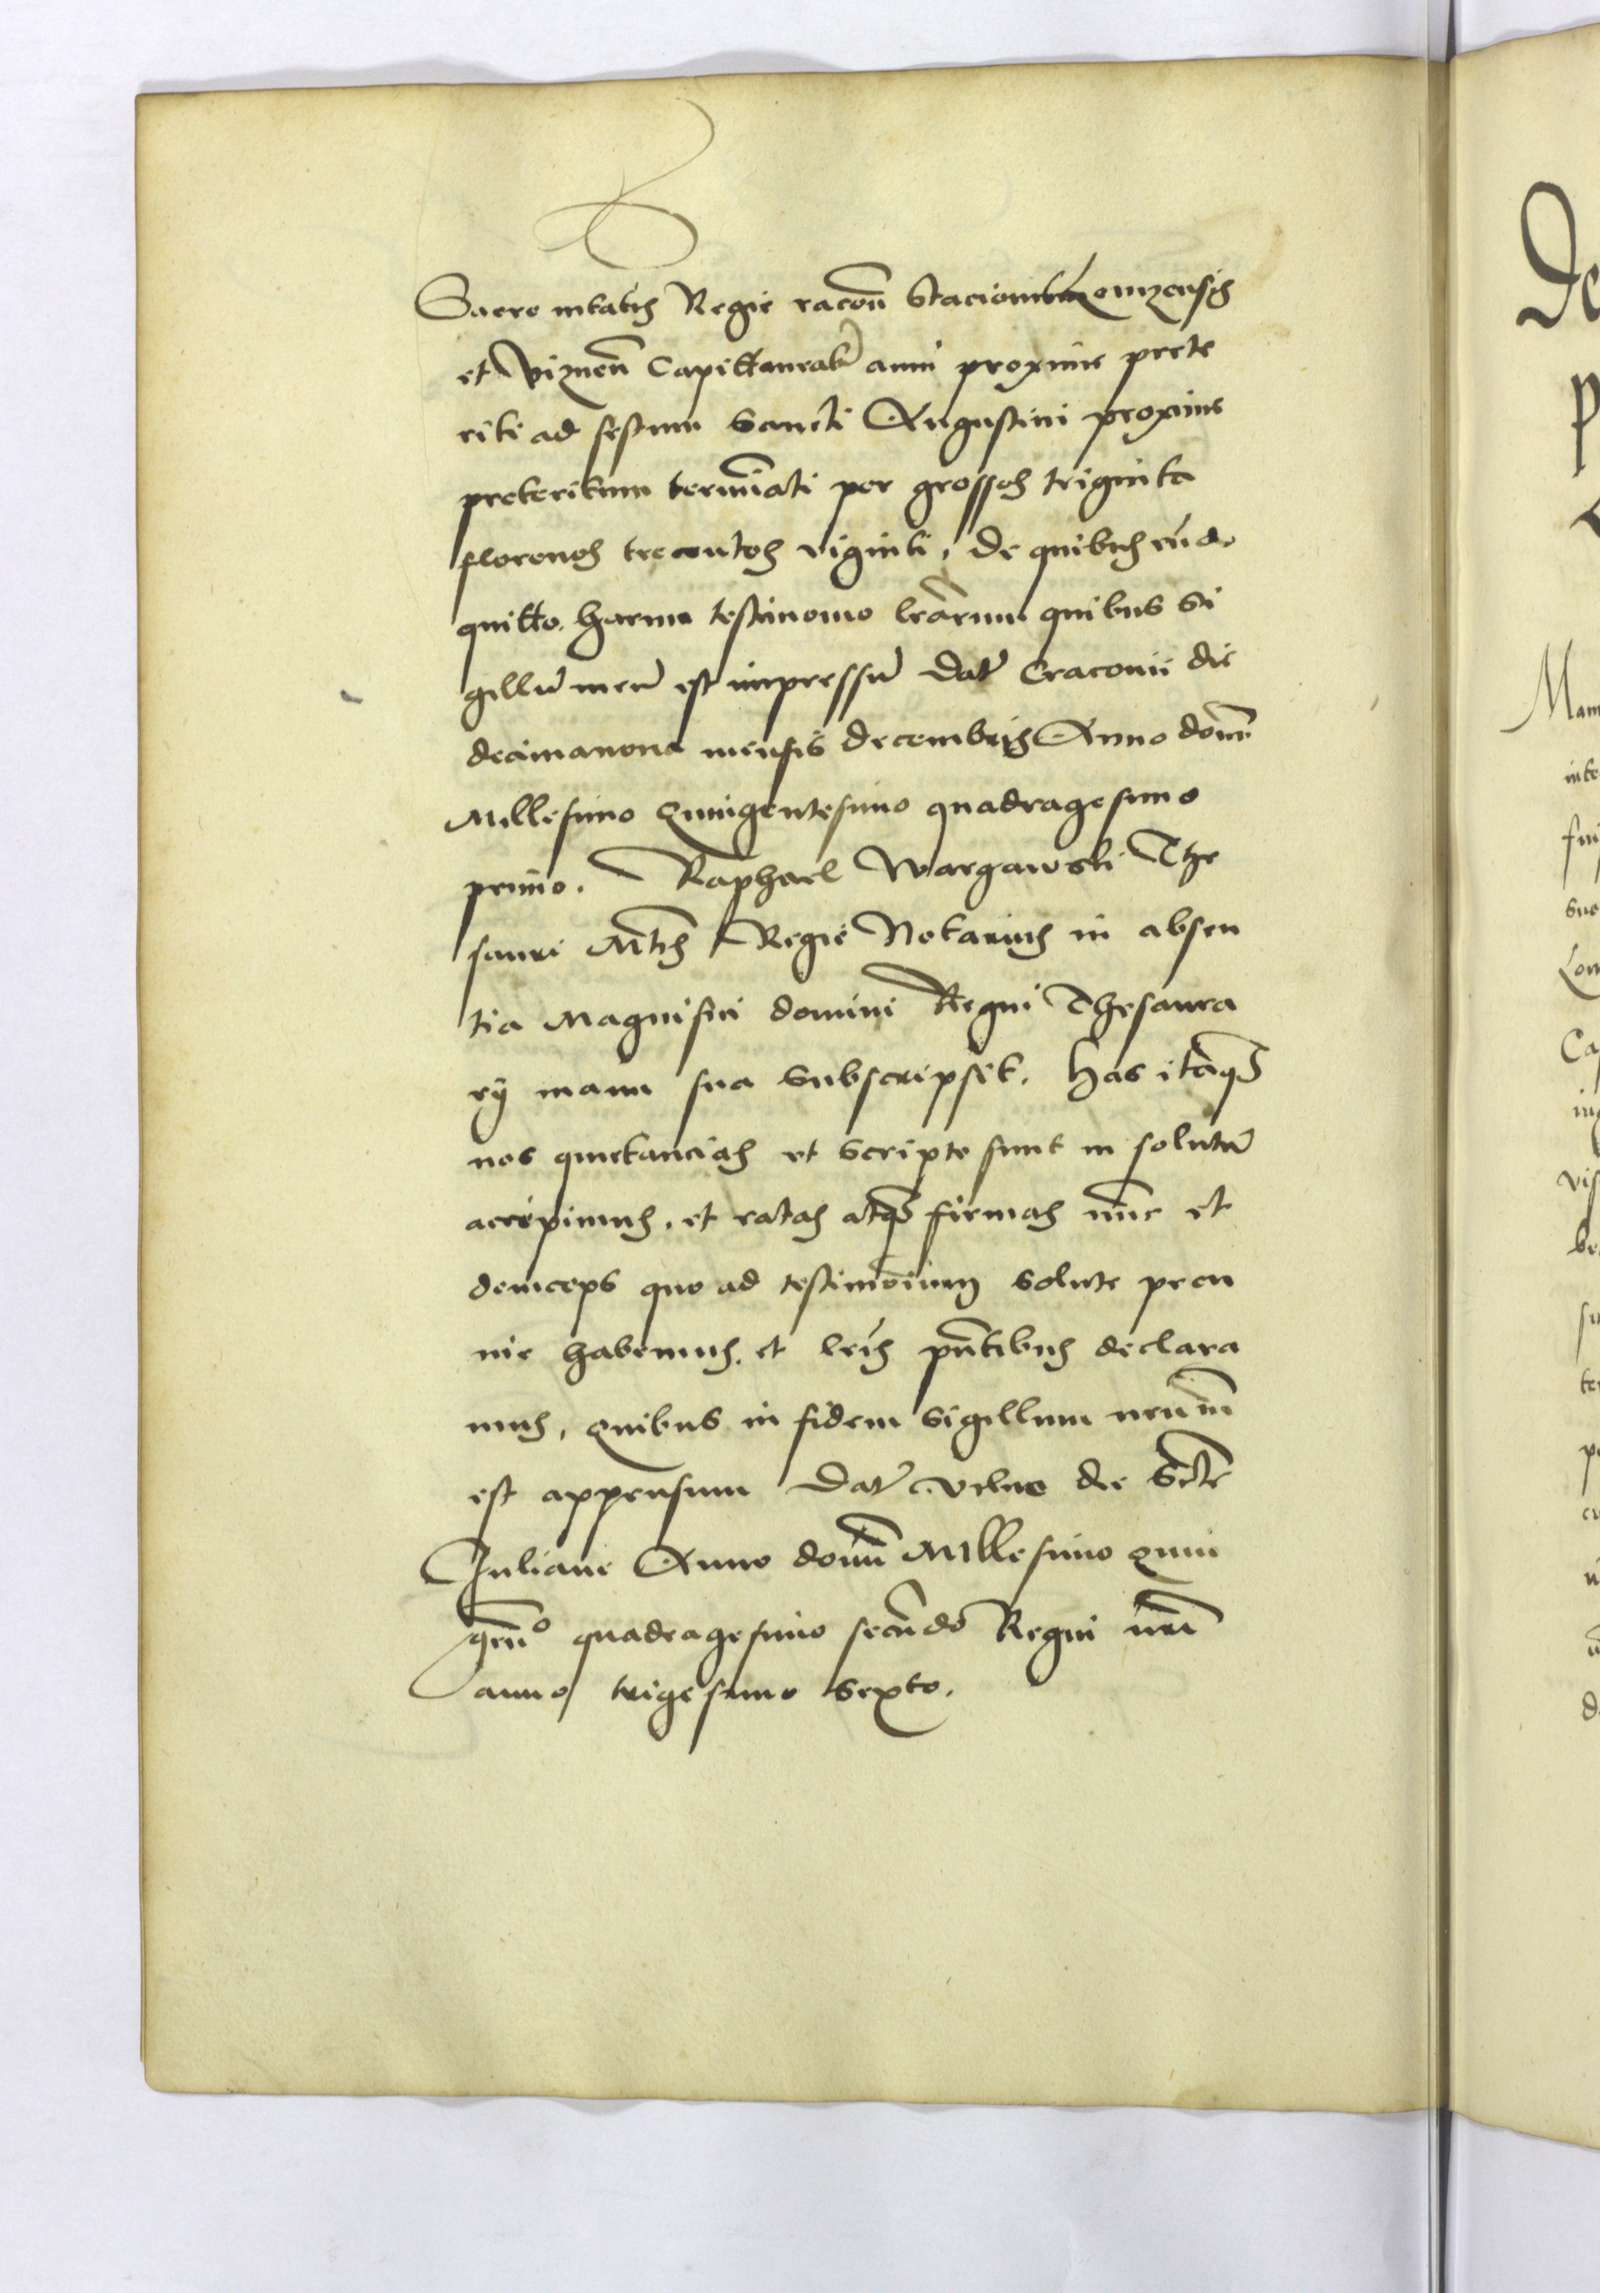 Sacre mtatis Regie racoñ stacionum Lomzensis
et Viznen̄ Capittaneat anni proxime prete
riti ad festum Sancti Augustini proxime
preteritum termīati per grossos triginta
florenos trecentos viginti, de quibus eūdē
quitto harum testimonio lrārum quibus Si
gillū meū est impressū Dat Cracovie die
decimanona mensis decembris Anno domī
Millesimo quingentesimo quadragesimo
primo. Raphael Wargawski The
sauri Mtis Regie Notarius in absen
tia Magnifici domini Regni Thesaura
rij manu sua subscripsit. Has itaq
nos quietancias et scripte sunt in solutū
accipimus, et ratas atq firmas nūc et
deinceps quo ad testimōium solute pecu
nie habemus, et lrīs pn̄tibus declara
mus, quibus in fidem Sigillum nrūm
est appensum Dat Vilne die Scte
Juliane Anno domī Millesimo quin
genº quadragesimo secūdo Regni nrī
anno trigesimo sexto.
De
p
Mam
inte
fui
sue
Lom
Ca
vis
be
te
p
d